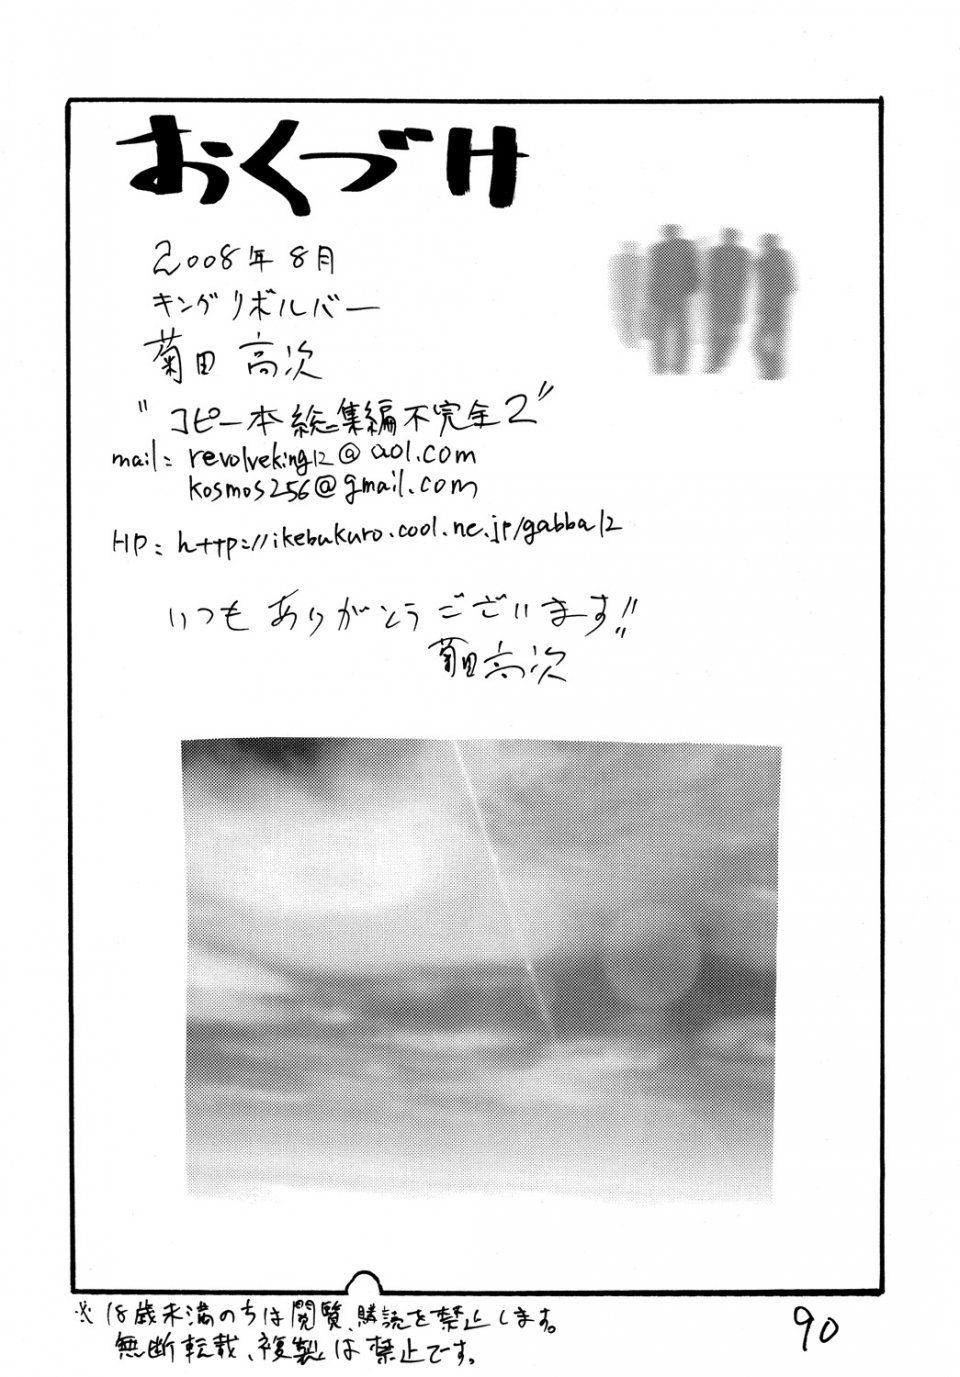 おくづけ
2008年8月
キングリボルバー
菊田 高次
"コピー本総集編不完全2"
mail: revolveking12@aol.com
kosmos256@gmail.com
HP: http://ikebukuro.cool.ne.jp/gabba12
いつもありがとうございます!!
菊田高次
※18歳未満のちは閲覧、購読を禁止します。
無断転載、複製は禁止です。
90